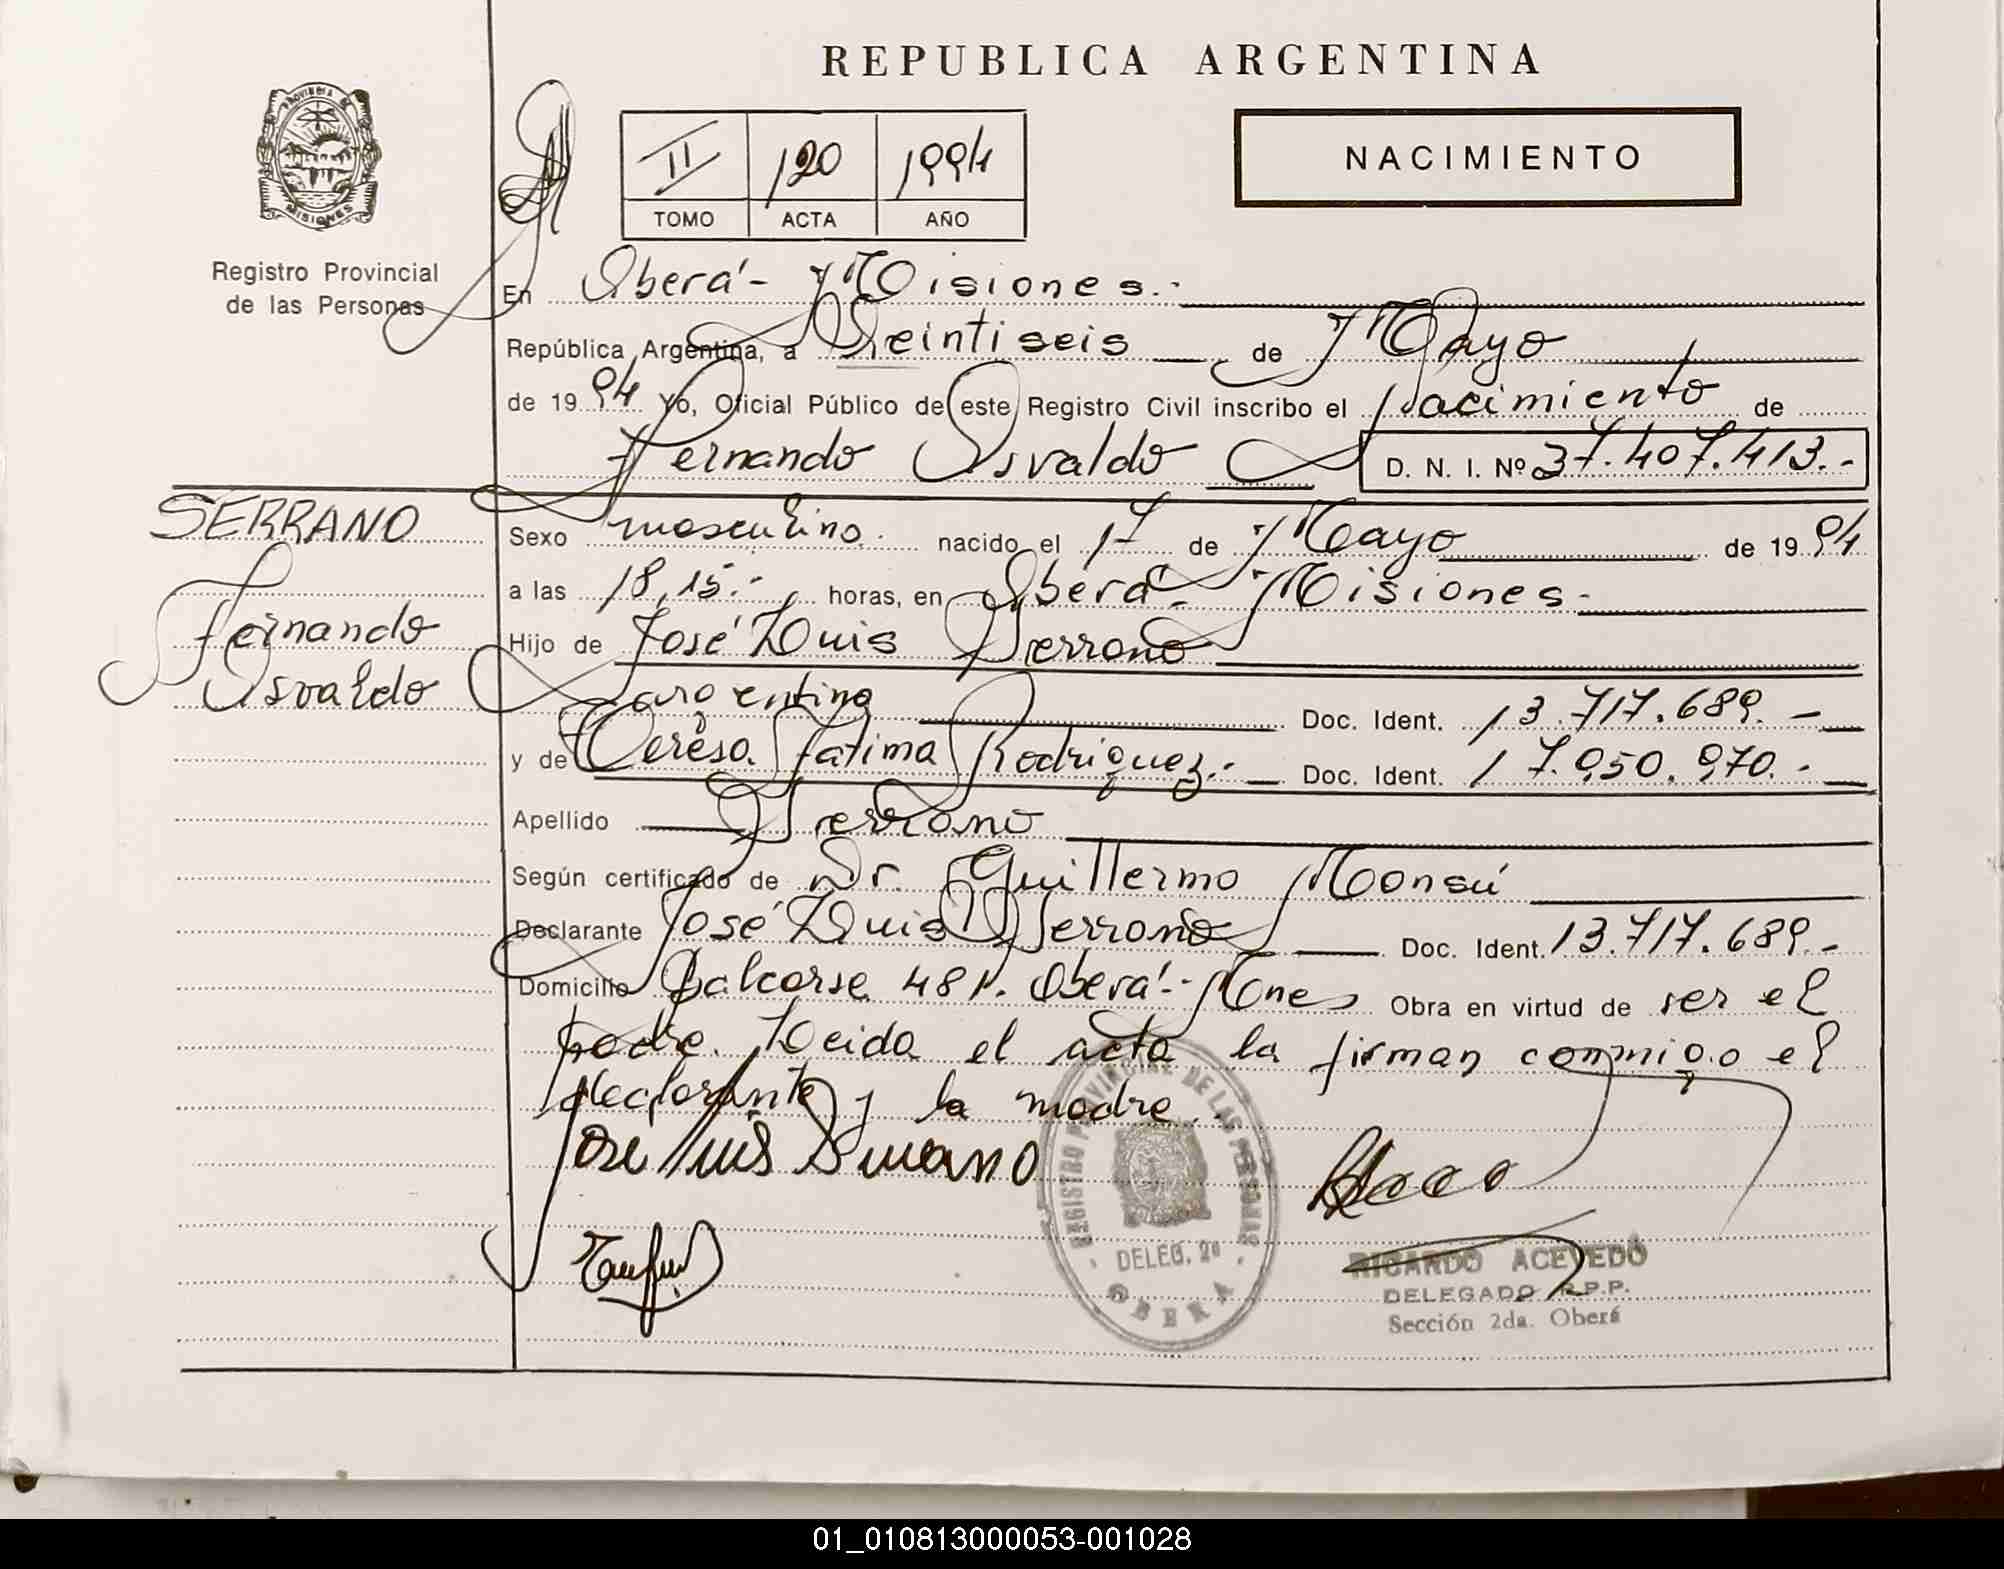 REPUBLICA ARGENTINA
PROVINCIA DE
MISIONES
Registro Provincial
de las Personas
II 120 1994
TOMO ACTA AÑO
NACIMIENTO
En Oberá - Misiones.-
República Argentina, a Veintiseis de Mayo
de 1994 Yo, Oficial Público de este Registro Civil inscribo el Nacimiento de
Fernando Osvaldo D. N. I. Nº 37.407.413.-
SERRANO
Fernando
Osvaldo
Sexo masculino. nacido el 17 de Mayo de 1994
a las 18,15.- horas, en Oberá - Misiones.-
Hijo de José Luis Serrano
argentino Doc. Ident. 13.717.689.-
y de Teresa Fatima Rodriguez.- Doc. Ident. 17.950.970.-
Apellido Serrano
Según certificado de Dr. Guillermo Monsú
Declarante José Luis Serrano Doc. Ident. 13.717.689.-
Domicilio 481. Oberá - Mnes Obra en virtud de ser el
padre. Leida el acta la firman conmigo el
declarante y la madre.
José Luis Serrano
REGISTRO PROVINCIAL DE LAS PERSONAS
DELEG. 2a
OBERA
RICARDO ACEVEDO
DELEGADO R.P.P.
Sección 2da. Oberá
01_010813000053-001028